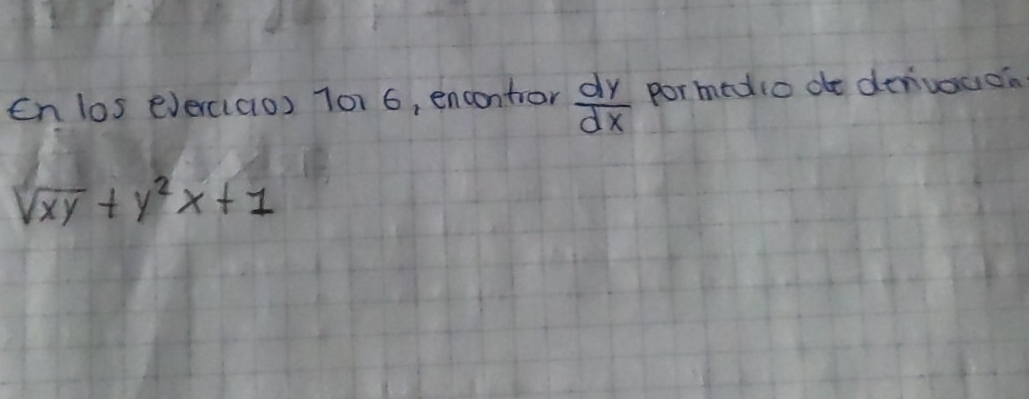 En los ejercicios 1 al 6, encontrar dy/dx por medio de derivación
√xy + y² x + 1